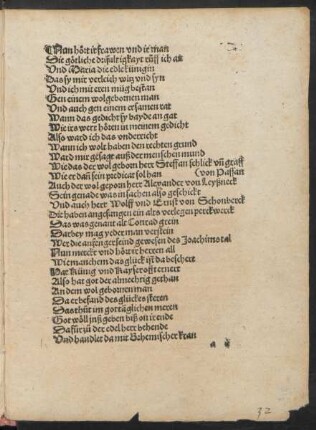 Nun hört ir frawen vnd ir man
Die götliche driualtigkayt rüff ich an
Vnd Maria die edle künigin
Das sy mir verleich witz vnd syn
Vnd ich mit eren müg bestan
Gen einem wolgebornen man
Vnd auch gen einem ersamen rat
Wann das gedicht sy bayde an gat
Wie irs wert hören in meinem gedicht
Also ward ich das vnderricht
Wann ich wolt haben den rechten grund
Ward mir gesagt auß der menschen mund
Wie das der wol geborn herr Steffan schlick vnd graff
Wie er dan sein predicat sol han (von Passan
Auch der wol geporn herr Alexander von Leyßneck
Sein genade was in sachen also geschickt
Vnd auch herr Wolff vnd Ernst von Schonberck
Die haben angefangen ein alts verlegen perckwerck
Das was genant alt Conrad grein
Darbey mag yeder man verstein
Wer die anfenger send gewesen des Joachims tal
Nun merckt vnd hörent all
Wie manchem das glück ist da beschert
Hat Künig vnd Kayser offt ernert
Also hat got der almechtig gethan
An dem wol gebornen man
Da er befand des glückes steren
Das thüt im got täglichen meren
Got wöll jnß geben biß on ir ende
Dafür zü der edel herr behende
Vnd handlet da mit Behemischer kran
a ij
32